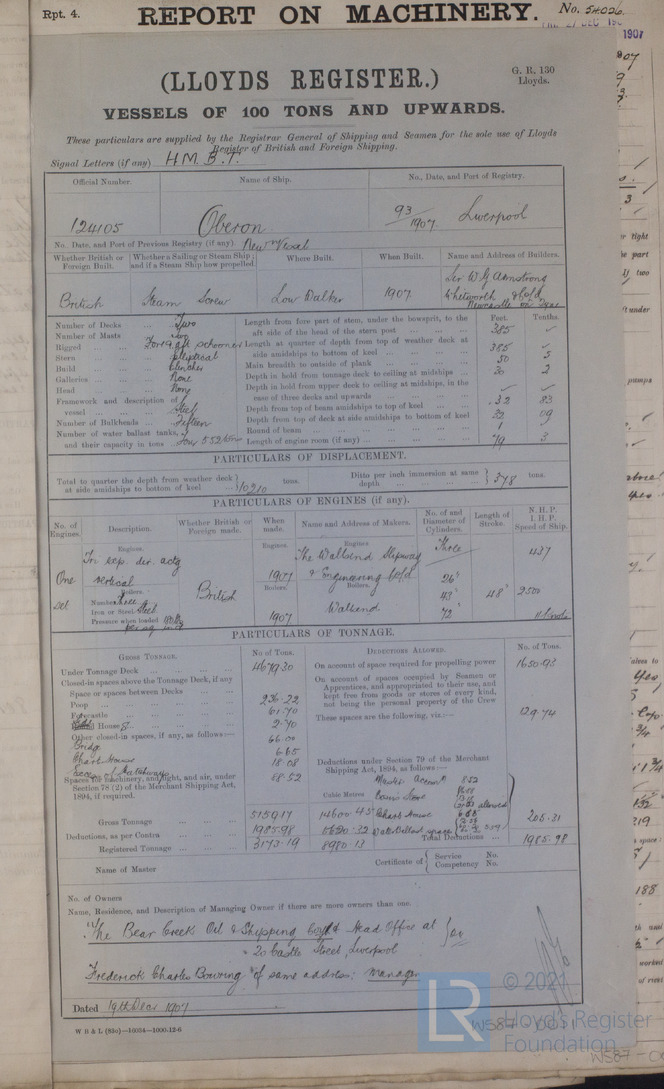 Rpt. 4.
REPORT ON MACHINERY.
No. 54026
1907
(LLOYDS REGISTER.)
G. R. 130
Lloyds.
VESSELS OF 100 TONS AND UPWARDS.
These particulars are supplied by the Registrar General of Shipping and Seamen for the sole use of Lloyds
Register of British and Foreign Shipping.
Signal Letters (if any) H.M.B.T.
Official Number. Name of Ship. No., Date, and Port of Registry.
124105 Oberon 93/1907 Liverpool
No. Date, and Port of Previous Registry (if any). New Vessel
Whether British or Foreign Built. Whether a Sailing or Steam Ship; and if a Steam Ship how propelled. Where Built. When Built. Name and Address of Builders.
British Steam Screw Low Walker 1907 Sir W G Armstrong
Whitworth & Co Ld
Newcastle on Tyne
Number of Decks Two
Number of Masts Two
Rigged Fore & aft schooner
Stern Elliptical
Build Clincher
Galleries None
Head None
Framework and description of vessel Steel
Number of Bulkheads Fifteen
Number of water ballast tanks, and their capacity in tons Four 852 tons
Feet. Tenths.
Length from fore part of stem, under the bowsprit, to the aft side of the head of the stern post 385
Length at quarter of depth from top of weather deck at side amidships to bottom of keel 385
Main breadth to outside of plank 50 5
Depth in hold from tonnage deck to ceiling at midships 30 2
Depth in hold from upper deck to ceiling at midships, in the case of three decks and upwards
Depth from top of beam amidships to top of keel 32 83
Depth from top of deck at side amidships to bottom of keel 32 09
Round of beam 1
Length of engine room (if any) 49 3
PARTICULARS OF DISPLACEMENT.
Total to quarter the depth from weather deck at side amidships to bottom of keel 10210 tons.
Ditto per inch immersion at same depth 378 tons.
PARTICULARS OF ENGINES (if any).
No. of Engines. Description. Whether British or Foreign made. When made. Name and Address of Makers. No. of and Diameter of Cylinders. Length of Stroke. N.H.P. I.H.P. Speed of Ship.
Engines. Engines. Engines
Tri exp. dir. actg
vertical
One
British
1907
The Wallsend Slipway
& Engineering Co Ld
Three
26"
43"
72"
48"
437
2500
Boilers. Boilers. Boilers.
Number
Iron or Steel Steel
Pressure when loaded
1907
Wallsend
PARTICULARS OF TONNAGE.
GROSS TONNAGE. No. of Tons.
Under Tonnage Deck 4679.30
Closed-in spaces above the Tonnage Deck, if any
Space or spaces between Decks
Poop 236.22
Forecastle 61.70
House 2.70
Other closed-in spaces, if any, as follows—
Bridge 66.00
Chart House 6.65
Excess of Hatchways 18.08
Spaces for machinery, and light, and air, under Section 78 (2) of the Merchant Shipping Act, 1894, if required. 88.52
Cubic Metres
Gross Tonnage 5159.17 14600.45
Deductions, as per Contra 1985.98 5620.32
Registered Tonnage 3173.19 8980.13
DEDUCTIONS ALLOWED. No. of Tons.
On account of space required for propelling power 1650.93
On account of spaces occupied by Seamen or Apprentices, and appropriated to their use, and kept free from goods or stores of every kind, not being the personal property of the Crew
These spaces are the following, viz.:— 129.74
Deductions under Section 79 of the Merchant Shipping Act, 1894, as follows—
Master's Accomn 8.52
Boatswains Store
Chart House 6.65
Water Ballast space
205.31
Total Deductions 1985.98
Name of Master
Certificate of Service No.
Competency No.
No. of Owners
Name, Residence, and Description of Managing Owner if there are more owners than one.
"The Bear Creek Oil & Shipping Co Ld Head Office at
20 Castle Street, Liverpool
Frederick Charles Bowring of same address: manager
Dated 19th Decr 1907
W B & L (83o)—10034—1000-12-6
LR
© 2021
Lloyd's Register
Foundation
W587-0011